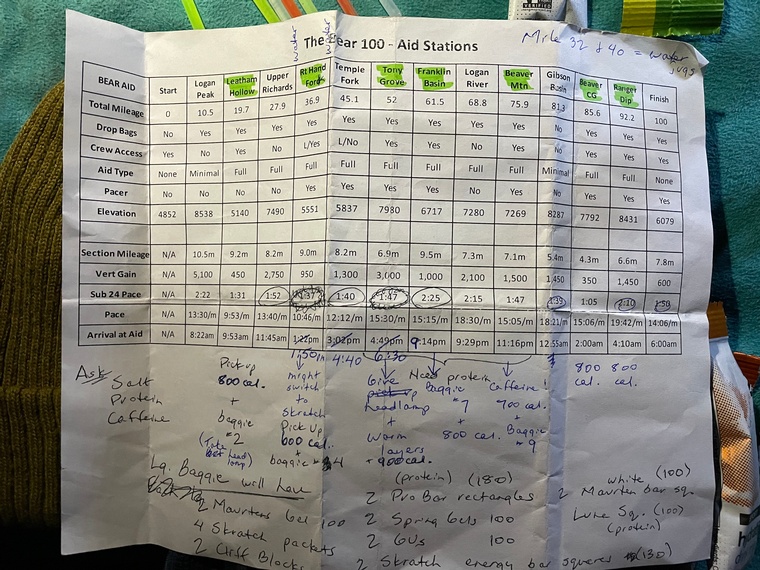 The Bear 100 - Aid Stations
water
water
Mile 32 & 40 = water
jugs
BEAR AID Start Logan Peak Leatham Hollow Upper Richards Rt Hand Fork Temple Fork Tony Grove Franklin Basin Logan River Beaver Mtn Gibson Basin Beaver CG Ranger Dip Finish
Total Mileage 0 10.5 19.7 27.9 36.9 45.1 52 61.5 68.8 75.9 81.3 85.6 92.2 100
Drop Bags No Yes Yes Yes Yes Yes Yes Yes Yes Yes No Yes Yes Yes
Crew Access Yes No Yes No L/Yes L/No Yes Yes No Yes No Yes Yes Yes
Aid Type None Minimal Full Full Full Full Full Full Full Full Minimal Full Full None
Pacer No No No No Yes Yes Yes Yes No Yes No Yes Yes Yes
Elevation 4852 8538 5140 7490 5551 5837 7980 6717 7280 7269 8287 7792 8431 6079
Section Mileage N/A 10.5m 9.2m 8.2m 9.0m 8.2m 6.9m 9.5m 7.3m 7.1m 5.4m 4.3m 6.6m 7.8m
Vert Gain N/A 5,100 450 2,750 950 1,300 3,000 1,000 2,100 1,500 1,450 350 1,450 600
Sub 24 Pace N/A 2:22 1:31 1:52 1:37 1:40 1:47 2:25 2:15 1:47 1:39 1:05 2:10 1:50
Pace N/A 13:30/m 9:53/m 13:40/m 10:46/m 12:12/m 15:30/m 15:15/m 18:30/m 15:05/m 18:21/m 15:06/m 19:42/m 14:06/m
Arrival at Aid N/A 8:22am 9:53am 11:45am 1:22pm 3:02pm 4:49pm 9:14pm 9:29pm 11:16pm 12:55am 2:00am 4:10am 6:00am
1:50 4:40 6:30
Ask
Salt
Protein
Caffeine
Pick up
800 cal.
+
baggie
#2
(Take
head
lamp)
might
switch
to
Skratch
Pick Up
600 cal.
+
baggie #4
Give
pick up
headlamp
+
Warm
layers
+ 900 cal.
Need protein
Baggie
#7
800 cal.
Caffeine!
700 cal.
+
Baggie
#9
800 800
cal. cal.
Lg. Baggie will have
2 Maurtens Gel 100
4 Skratch packets
2 Cliff Blocks
(protein) (180)
2 Pro Bar rectangles
2 Spring Gels 100
2 GUs 100
2 Skratch energy bar squares (130)
white (100)
2 Maurten bar sq.
Luna Sq. (100)
(protein)